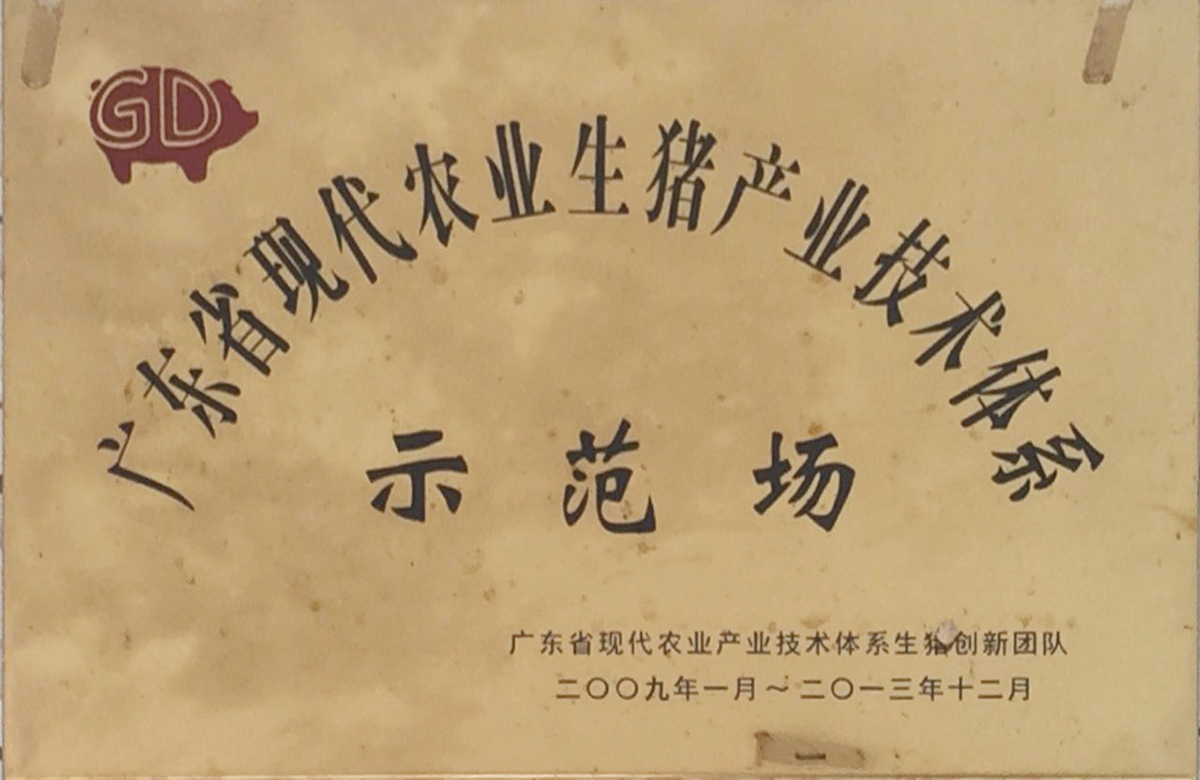 GD
广东省现代农业生猪产业技术体系
示范场
广东省现代农业产业技术体系生猪创新团队
二〇〇九年一月~二〇一三年十二月